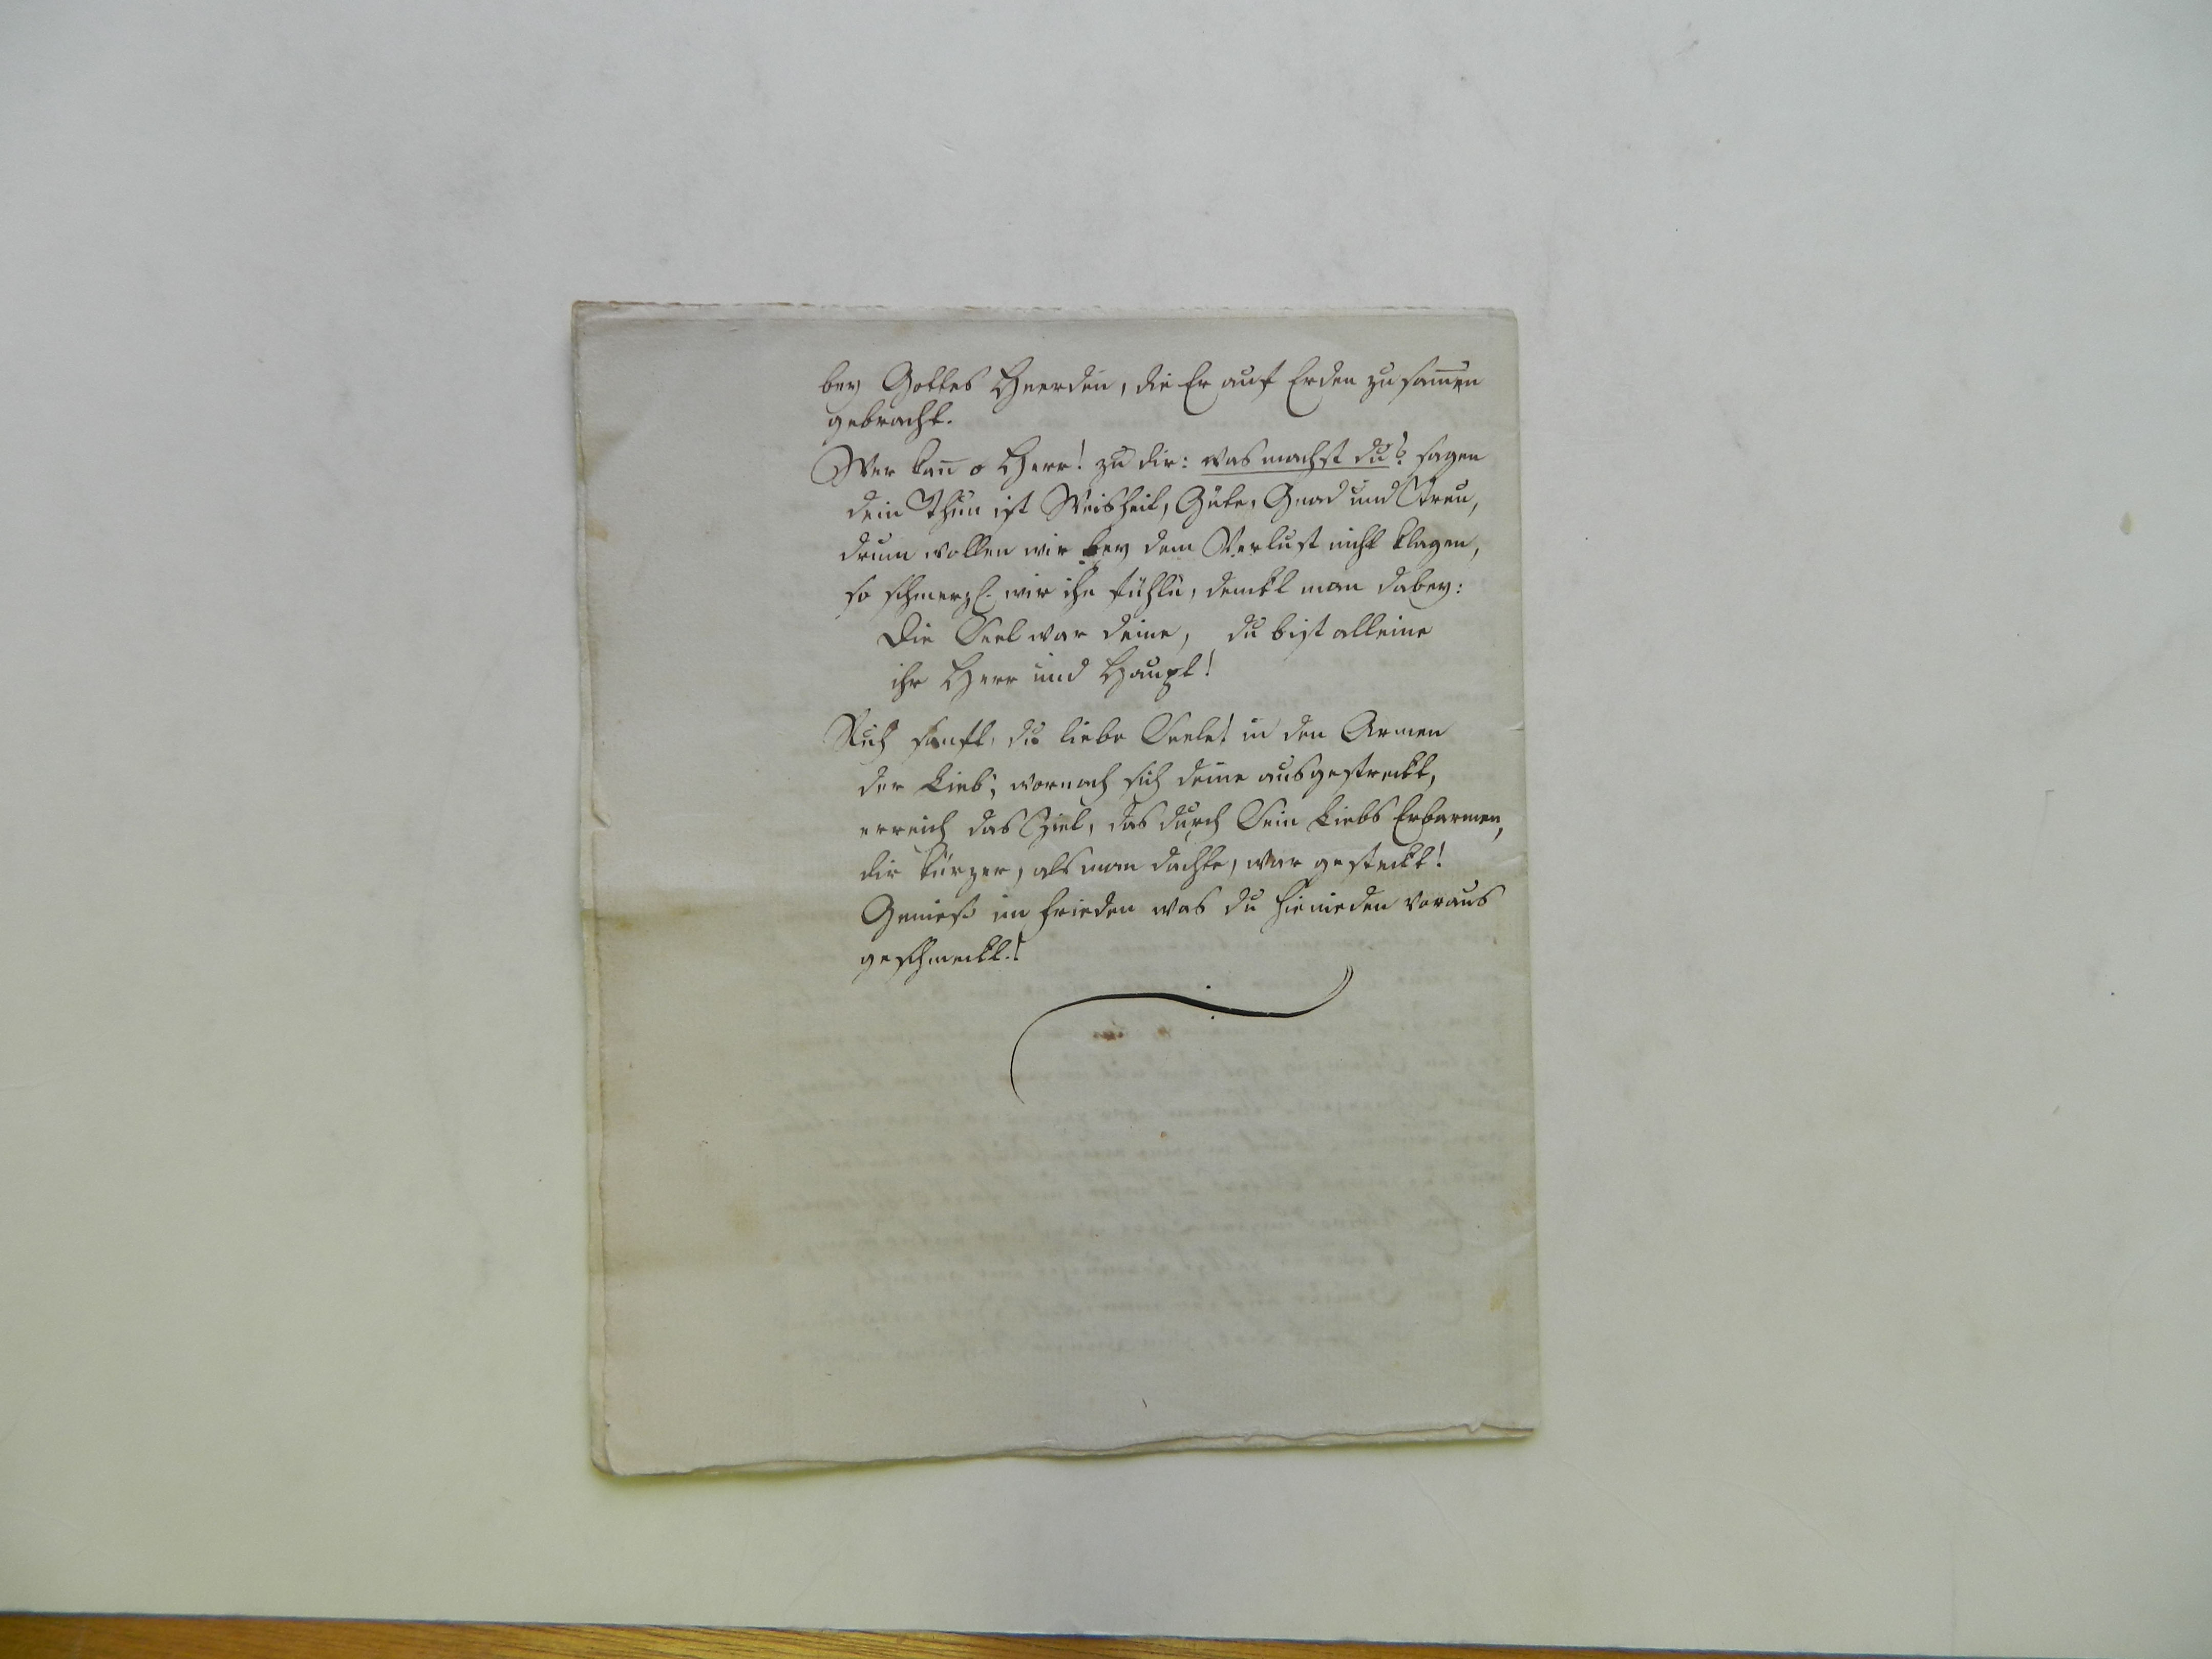 bey Gottes Heerden, die Er auf Erden zusam̅en
gebracht.
Wer kan̅ o Herr! zu dir: was machst du? sagen
dein Thun ist Weisheit, Güte, Gnad und Treu,
drum wollen wir bey dem Verlust nicht klagen,
so schmerzl. wir ihn fühln, denckt man dabey:
Die Seel war deine, du bist alleine
ihr Herr und Haupt!
Ruh sanft, du liebe Seele! in den Armen
der Lieb, wornach sich deine ausgestreckt,
erreich das Ziel, das durch Sein Liebs Erbarmen,
dir kürzer, als man dachte, war gesteckt!
Genieß im Frieden was du hienieden voraus
geschmeckt.!